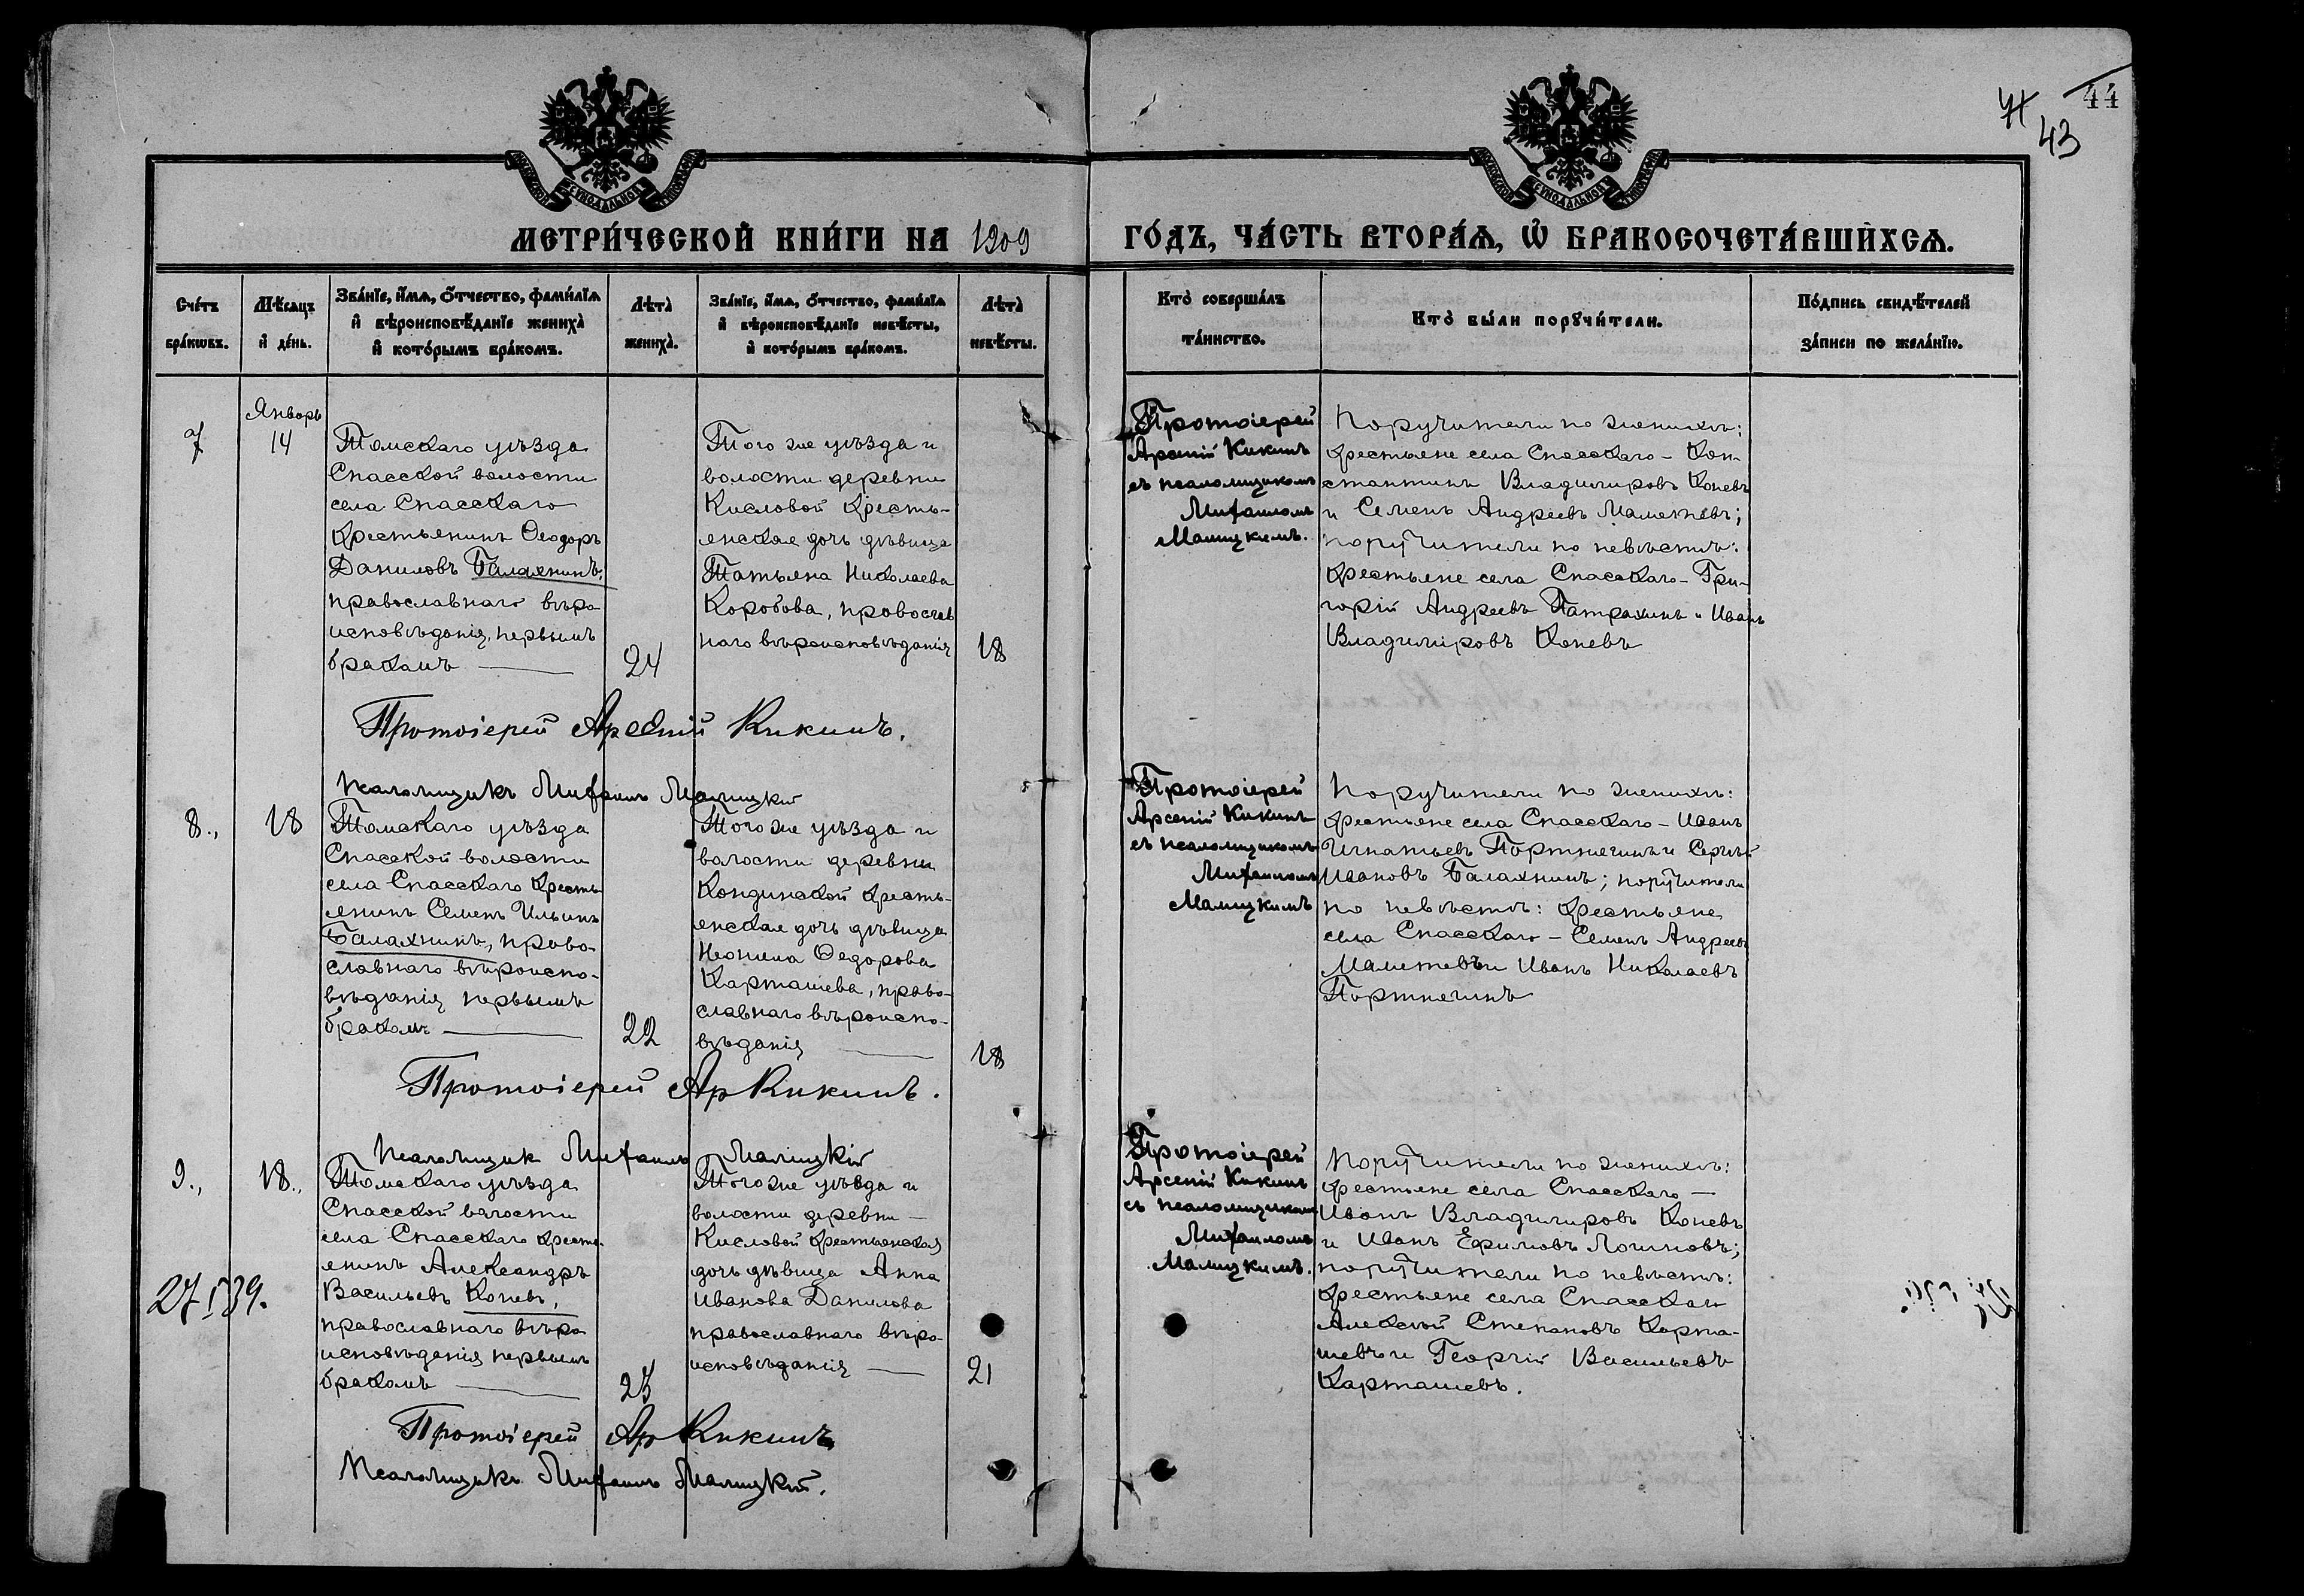 44
43
МЕТРИ́ЧЕСКОЙ КНИ́ГИ НА 1909
ГО́ДЪ, ЧА́СТЬ ВТОРА́Ѧ, Ѡ҆ БРАКОСОЧЕТА́ВШИХСѦ.
Сче́тъ бра́кѡвъ.
Мѣ́сѧцъ и҆ де́нь.
Зва́нїе, и҆́мѧ, ѻ҆́тчество, фами́лїѧ
и҆ вѣроисповѣ́данїе жениха̀
и҆ кото́рымъ бра́комъ.
Лѣта̀ жениха̀.
Зва́нїе, и҆́мѧ, ѻ҆́тчество, фами́лїѧ
и҆ вѣроисповѣ́данїе невѣ́сты,
и҆ кото́рымъ бра́комъ.
Лѣта̀ невѣ́сты.
Кто̀ соверша́лъ
та́инство.
Кто̀ бы́ли порꙋчи́тели.
По́дпись свидѣ́телей
за́писи по жела́нїю.
7
Январь
14
Томскаго уѣзда
Спасской волости
села Спасскаго
Крестьянинъ Ѳеодоръ
Даниловъ Балахнинъ,
православнаго вѣро
исповѣданія, первымъ
бракомъ —
24
Того же уѣзда и
волости деревни
Кисловой Кресть-
янская дочь дѣвица
Татьяна Николаева
Коробова, православ
наго вѣроисповѣданія
18
Протоіерей
Арсеній Кикинъ
съ псаломщикомъ
Михаиломъ
Малицкимъ.
Поручители по женихѣ:
Крестьяне села Спасскаго – Кон-
стантинъ Владиміровъ Коневъ
и Семенъ Андреевъ Маметевъ;
поручители по невѣстѣ:
Крестьяне села Спасскаго – Гри-
горій Андреевъ Патрахинъ и Иванъ
Владиміровъ Коневъ
Протоіерей Арсеній Кикинъ.
Псаломщикъ Михаилъ Малицкій
8.,
18
Томскаго уѣзда
Спасской волости
села Спасскаго Кресть
янинъ Семенъ Ильинъ
Балахнинъ, право-
славнаго вѣроиспо-
вѣданія первымъ
бракомъ —
22
Того же уѣзда и
волости деревни
Кондинской Кресть-
янская дочь дѣвица
Неонила Ѳедорова
Карташева, право-
славнаго вѣроиспо-
вѣданія —
18
Протоіерей
Арсеній Кикинъ
съ псаломщикомъ
Михаиломъ
Малицкимъ
Поручители по женихѣ:
Крестьяне села Спасскаго – Иванъ
Игнатьевъ Портнягинъ и Сергѣй
Ивановъ Балахнинъ; поручители
по невѣстѣ: Крестьяне
села Спасскаго – Семенъ Андреевъ
Маметевъ и Иванъ Николаевъ
Портнягинъ
Протоіерей Ар Кикинъ.
Псаломщикъ Михаилъ Малицкій
9.,
18.,
27 I 39.
Томскаго уѣзда
Спасской волости
села Спасскаго Кресть-
янинъ Александръ
Васильевъ Коневъ,
православнаго вѣро
исповѣданія первымъ
бракомъ —
25
Того же уѣзда и
волости деревни —
Кисловой Крестьянская
дочь дѣвица Анна
Иванова Данилова
православнаго вѣро-
исповѣданія —
21
Протоіерей
Арсеній Кикинъ
съ псаломщикомъ
Михаиломъ
Малицкимъ.
Поручители по женихѣ:
Крестьяне села Спасскаго —
Иванъ Владиміровъ Коневъ
и Иванъ Ефимовъ Логиновъ;
поручители по невѣстѣ:
Крестьяне села Спасскаго
Алексѣй Степановъ Карта-
шевъ и Георгій Васильевъ
Карташевъ.
Протоіерей Ар Кикинъ
Псаломщикъ Михаилъ Малицкій.